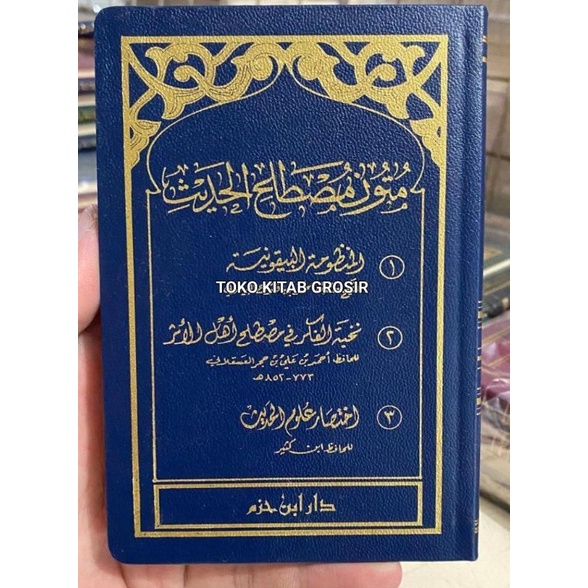 متون مصطلح الحديث
١ المنظومة البيقونية
TOKO KITAB GROSIR
٢ نخبة الفكر في مصطلح أهل الأثر
للحافظ أحمد بن علي بن حجر العسقلاني
٧٧٣-٨٥٢هـ
٣ اختصار علوم الحديث
للحافظ ابن كثير
دار ابن حزم